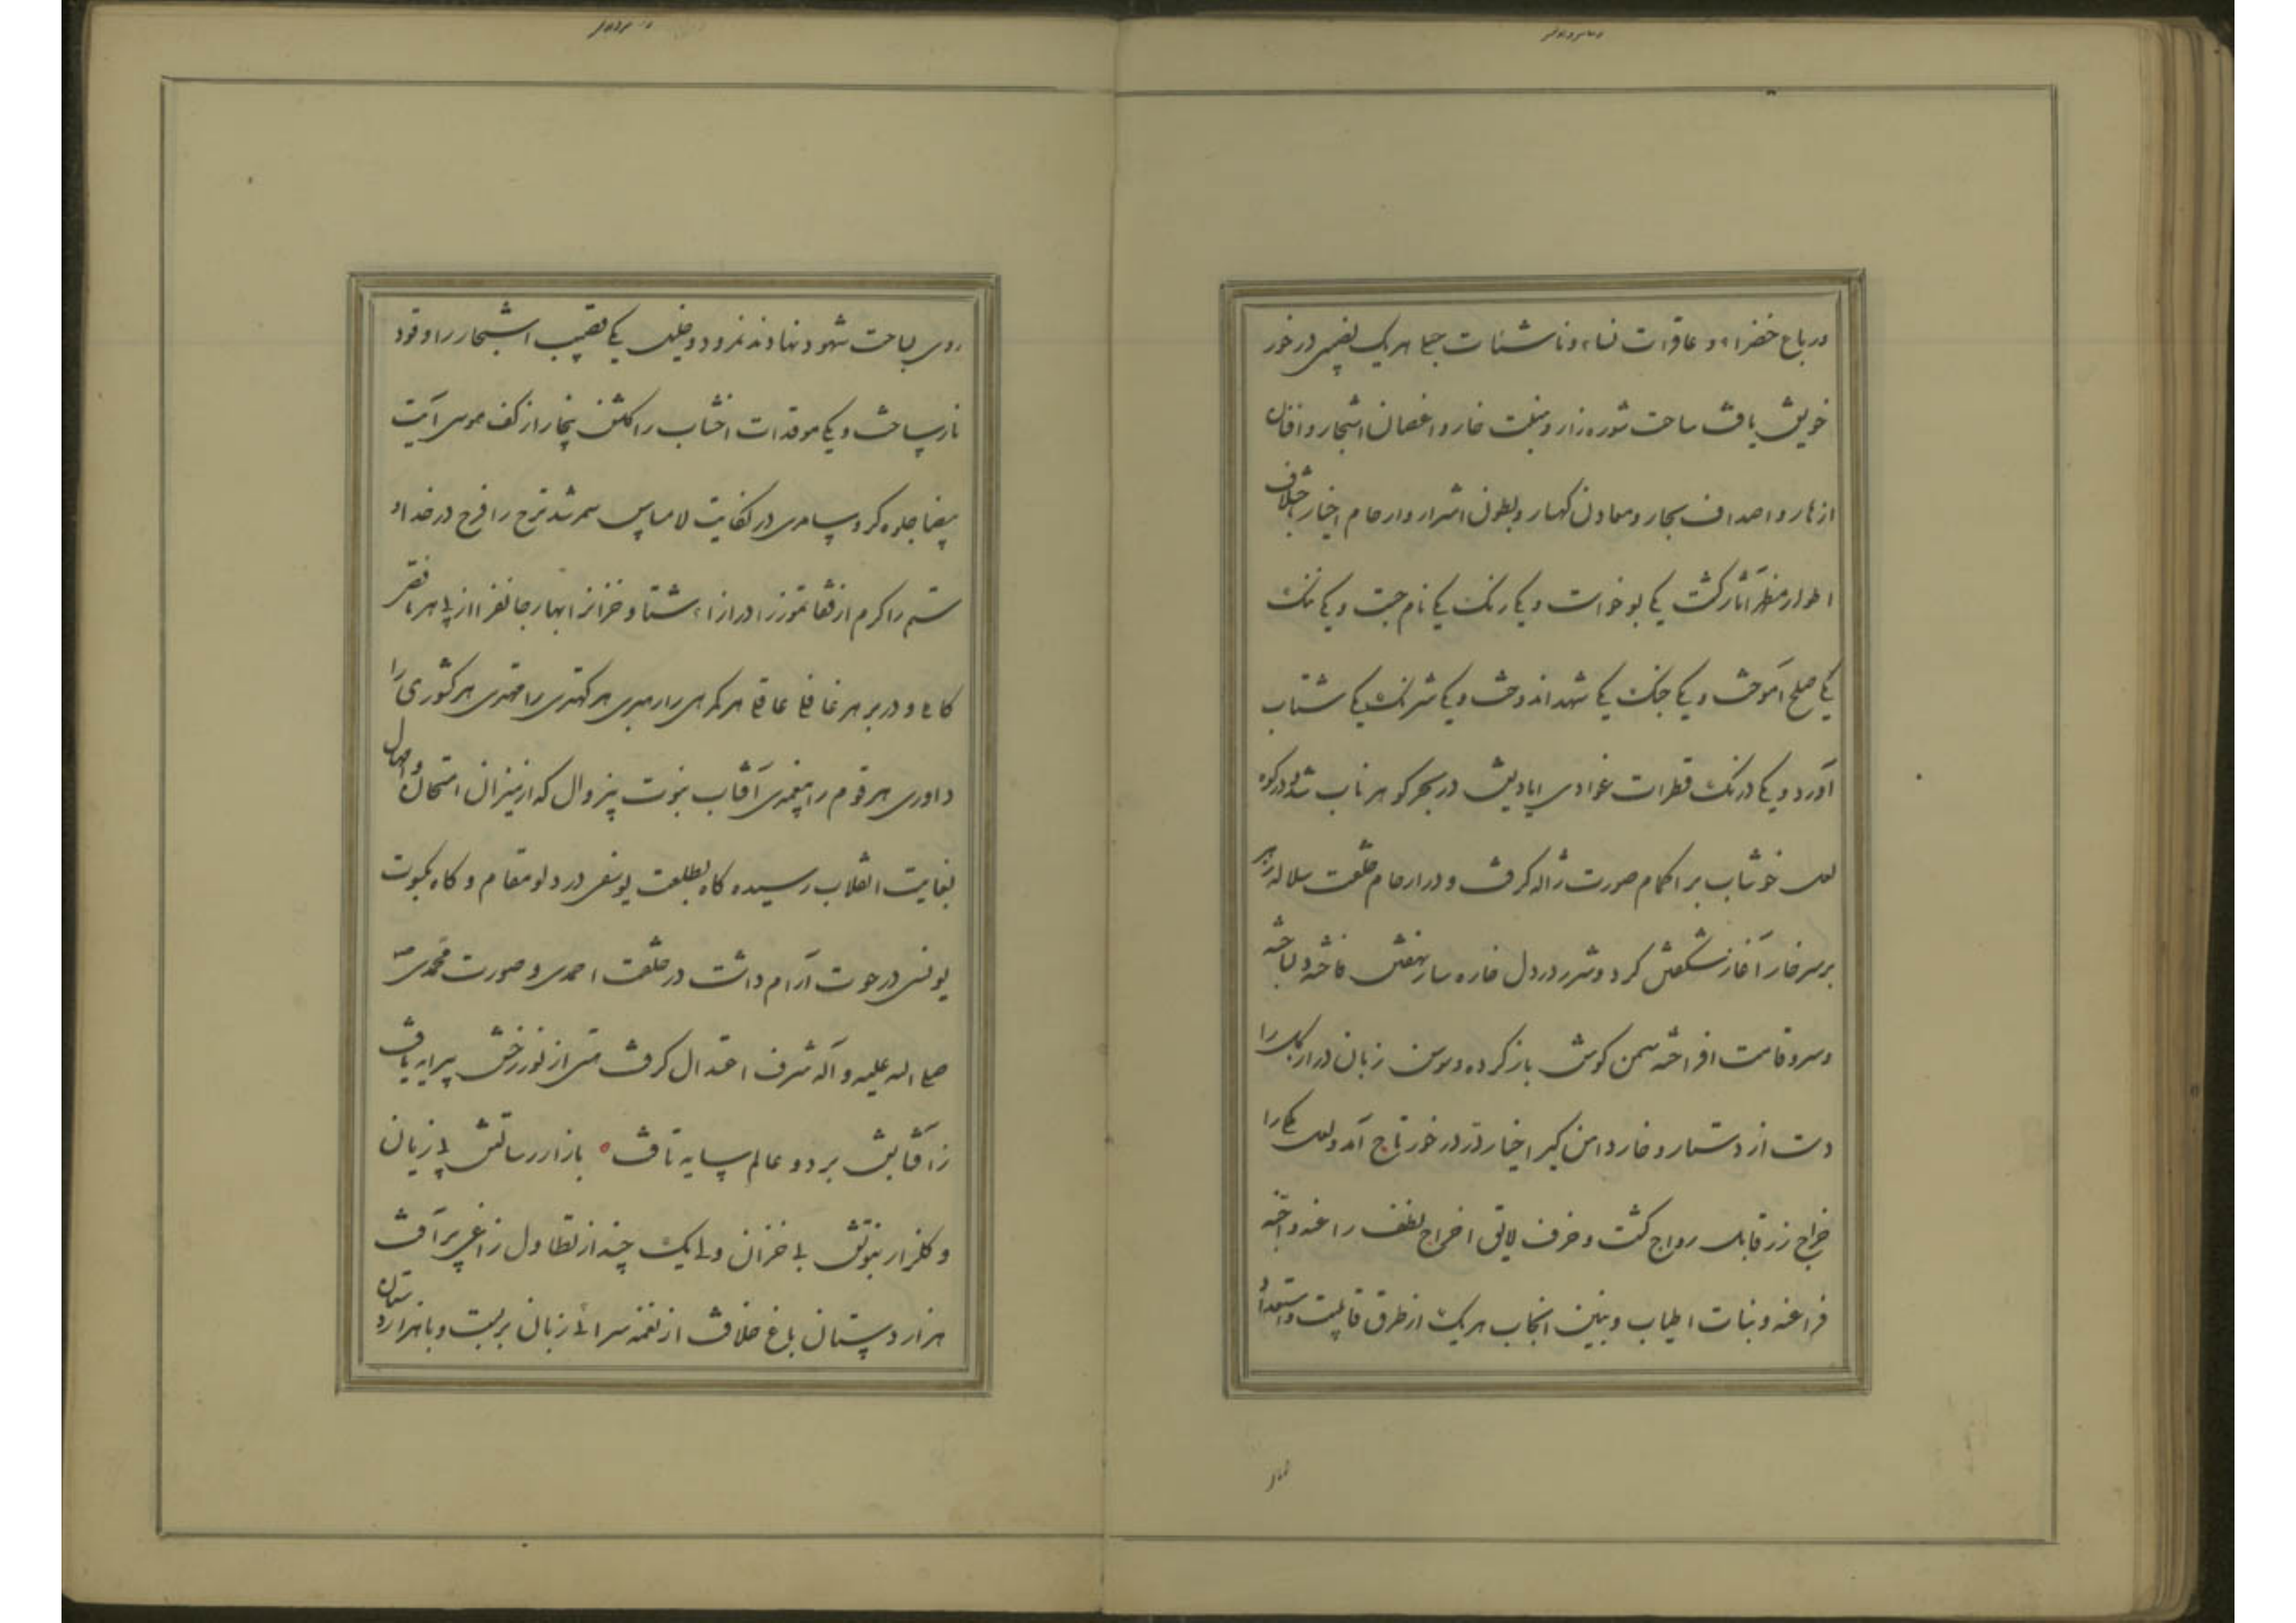 در باغ خضراء و عاقرات نساء و ناشئات حبلی هریک بفیضی در خور
خویش یافت ساحت شوره‌زار و منبت خار و اغصان اشجار و افنان
ازهار و اصداف بحار و معادن کهسار و بطون اشرار و ارحام اخیار باختلاف
اطوار مظهر آثار گشت یکی بو خواست و یکی رنگ یکی نام جست و یکی ننگ
یکی صلح آموخت و یکی جنگ یکی شهد اندوخت و یکی شرنگ یکی شتاب
آورد و یکی درنگ قطرات غوادی ایادیش در بحر گوهر ناب شد و در کوه
لعل خوشاب بر اکمام صورت ژاله گرفت و در ارحام خلقت سلاله زهر
بر سر خار آغاز شکفتن کرد و شرر در دل خاره ساز نهفتن فاخته دلباخته
و سرو قامت افراخته سمن گوش باز کرده و سوسن زبان دراز گل را
دست از دستار و خار دامن گیر اختیار زر در خور تاج آمد و لعل یکی را
خراج زر قابل رواج گشت و خزف لایق اخراج نطف راغنه و اجنه
فراعنه و بنات اطیاب و بنین انجاب هریک از طرق قابلیت و استعداد
روی بساحت شهود نهادند نمرود و خلیل یکی قضیب اشجار را وقود
نار ساخت و یکی موقدات اخشاب را گلشن بیخار از کف موسی آیت
بیضا جلوه کرد و سامری در نکایت لامساس سمر شد ترح را فرح در خداد
ستم را کرم از قفا تموز را در ازاء شتا و خزان را بهار جانفزا از پی هر ناقص
کاملی و در بر هر غافلی عاقلی هر گمرهی را رهبری هر کهتری را مهتری هر کشوری را
داوری هر قوم را پیغمبری آفتاب نبوت بیزوال که از میزان امتحان و اهوال
بغایت انقلاب رسیده گاه بطلعت یوسفی در دلو مقام و گاه بکسوت
یونسی در حوت آرام داشت در خلقت احمدی و صورت محمدی ص
صلی اله علیه و آله شرف اعتدال گرفت متی از نور رخش پیرایه یافت
ز آفتابش بر دو عالم سایه تافت بازار رسالتش بی زیان
و گلزار نبوتش بی خزان ولی اینک چند از تطاول زاغی پر آفت
هزار دستان باغ خلافت از نغمه سرائی زبان بربست و با هزار دستان